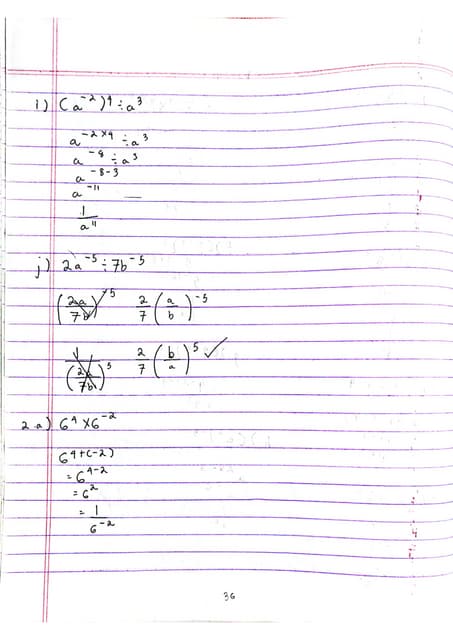 i) (a⁻²)⁴ ÷ a³
a⁻²ˣ⁴ ÷ a³
a⁻⁸ ÷ a³
a⁻⁸⁻³
a⁻¹¹
1/a¹¹
j) 2a⁻⁵ ÷ 7b⁻⁵
(2a/7b)⁻⁵ 2/7 (a/b)⁻⁵
1/(2a/7b)⁵ 2/7 (b/a)⁵ ✓
2 a) 6⁴ × 6⁻²
6⁴⁺⁽⁻²⁾
= 6⁴⁻²
= 6²
= 1/6⁻²
36